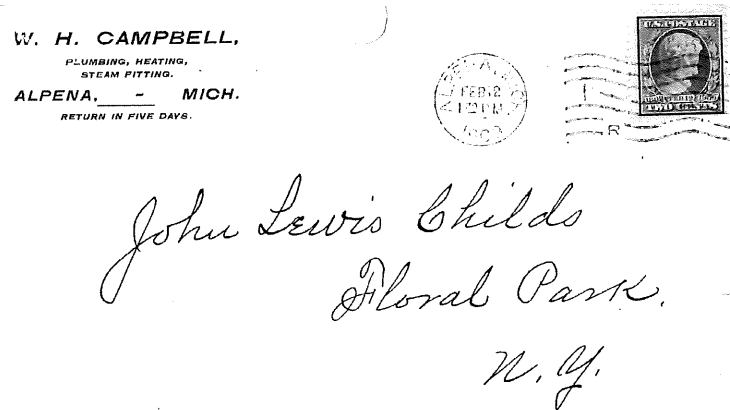 W. H. CAMPBELL,
PLUMBING, HEATING,
STEAM FITTING.
ALPENA, - MICH.
RETURN IN FIVE DAYS.
ALPENA, MICH.
FEB 12
12 PM
U.S. POSTAGE
TWO CENTS
R
John Lewis Childs
Floral Park.
N. Y.